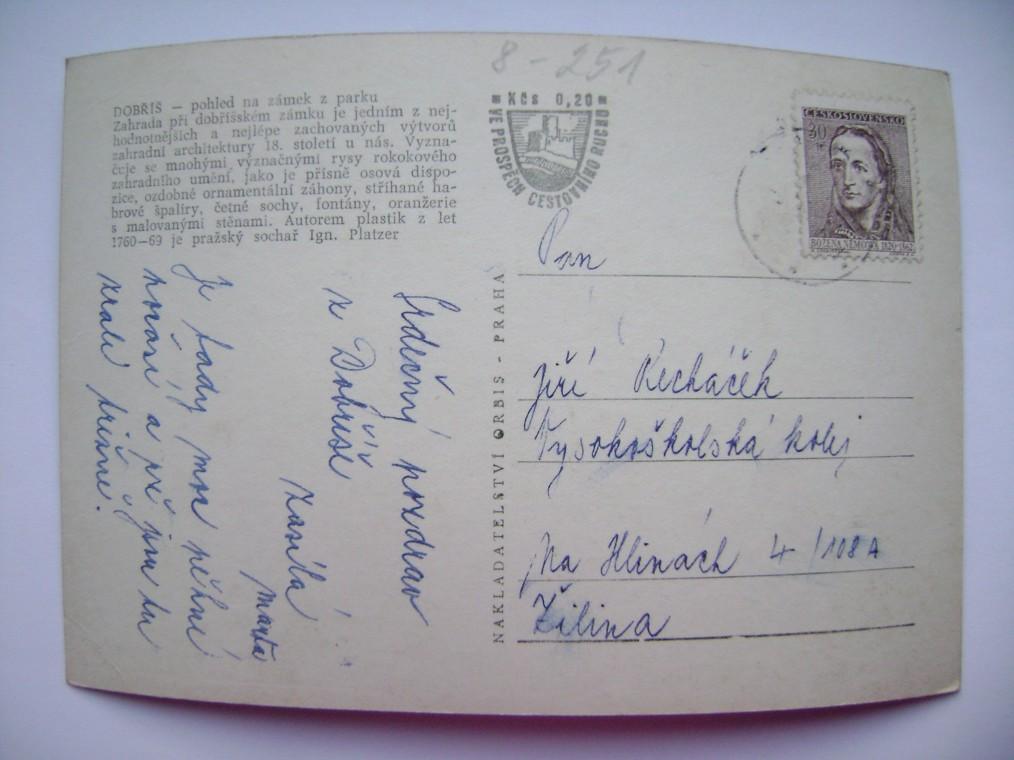 8-251
DOBŘÍŠ — pohled na zámek z parku
Zahrada při dobříšském zámku je jedním z nej-
hodnotnějších a nejlépe zachovaných výtvorů
zahradní architektury 18. století u nás. Vyzna-
čuje se mnohými význačnými rysy rokokového
zahradního umění, jako je přísně osová dispo-
zice, ozdobné ornamentální záhony, stříhané ha-
brové špalíry, četné sochy, fontány, oranžerie
s malovanými stěnami. Autorem plastik z let
1760—69 je pražský sochař Ign. Platzer
Kčs 0,20
VE PROSPĚCH CESTOVNÍHO RUCHU
ČESKOSLOVENSKO
30
BOŽENA NĚMCOVÁ 1820-1862
NAKLADATELSTVÍ ORBIS - PRAHA
Srdečný pozdrav
z Dobříše
zasílá
Marta
Je tady moc pěkně
a
Pan
Jiří Řecháček
Vysokoškolská kolej
Na Hlinách 4/108A
Žilina